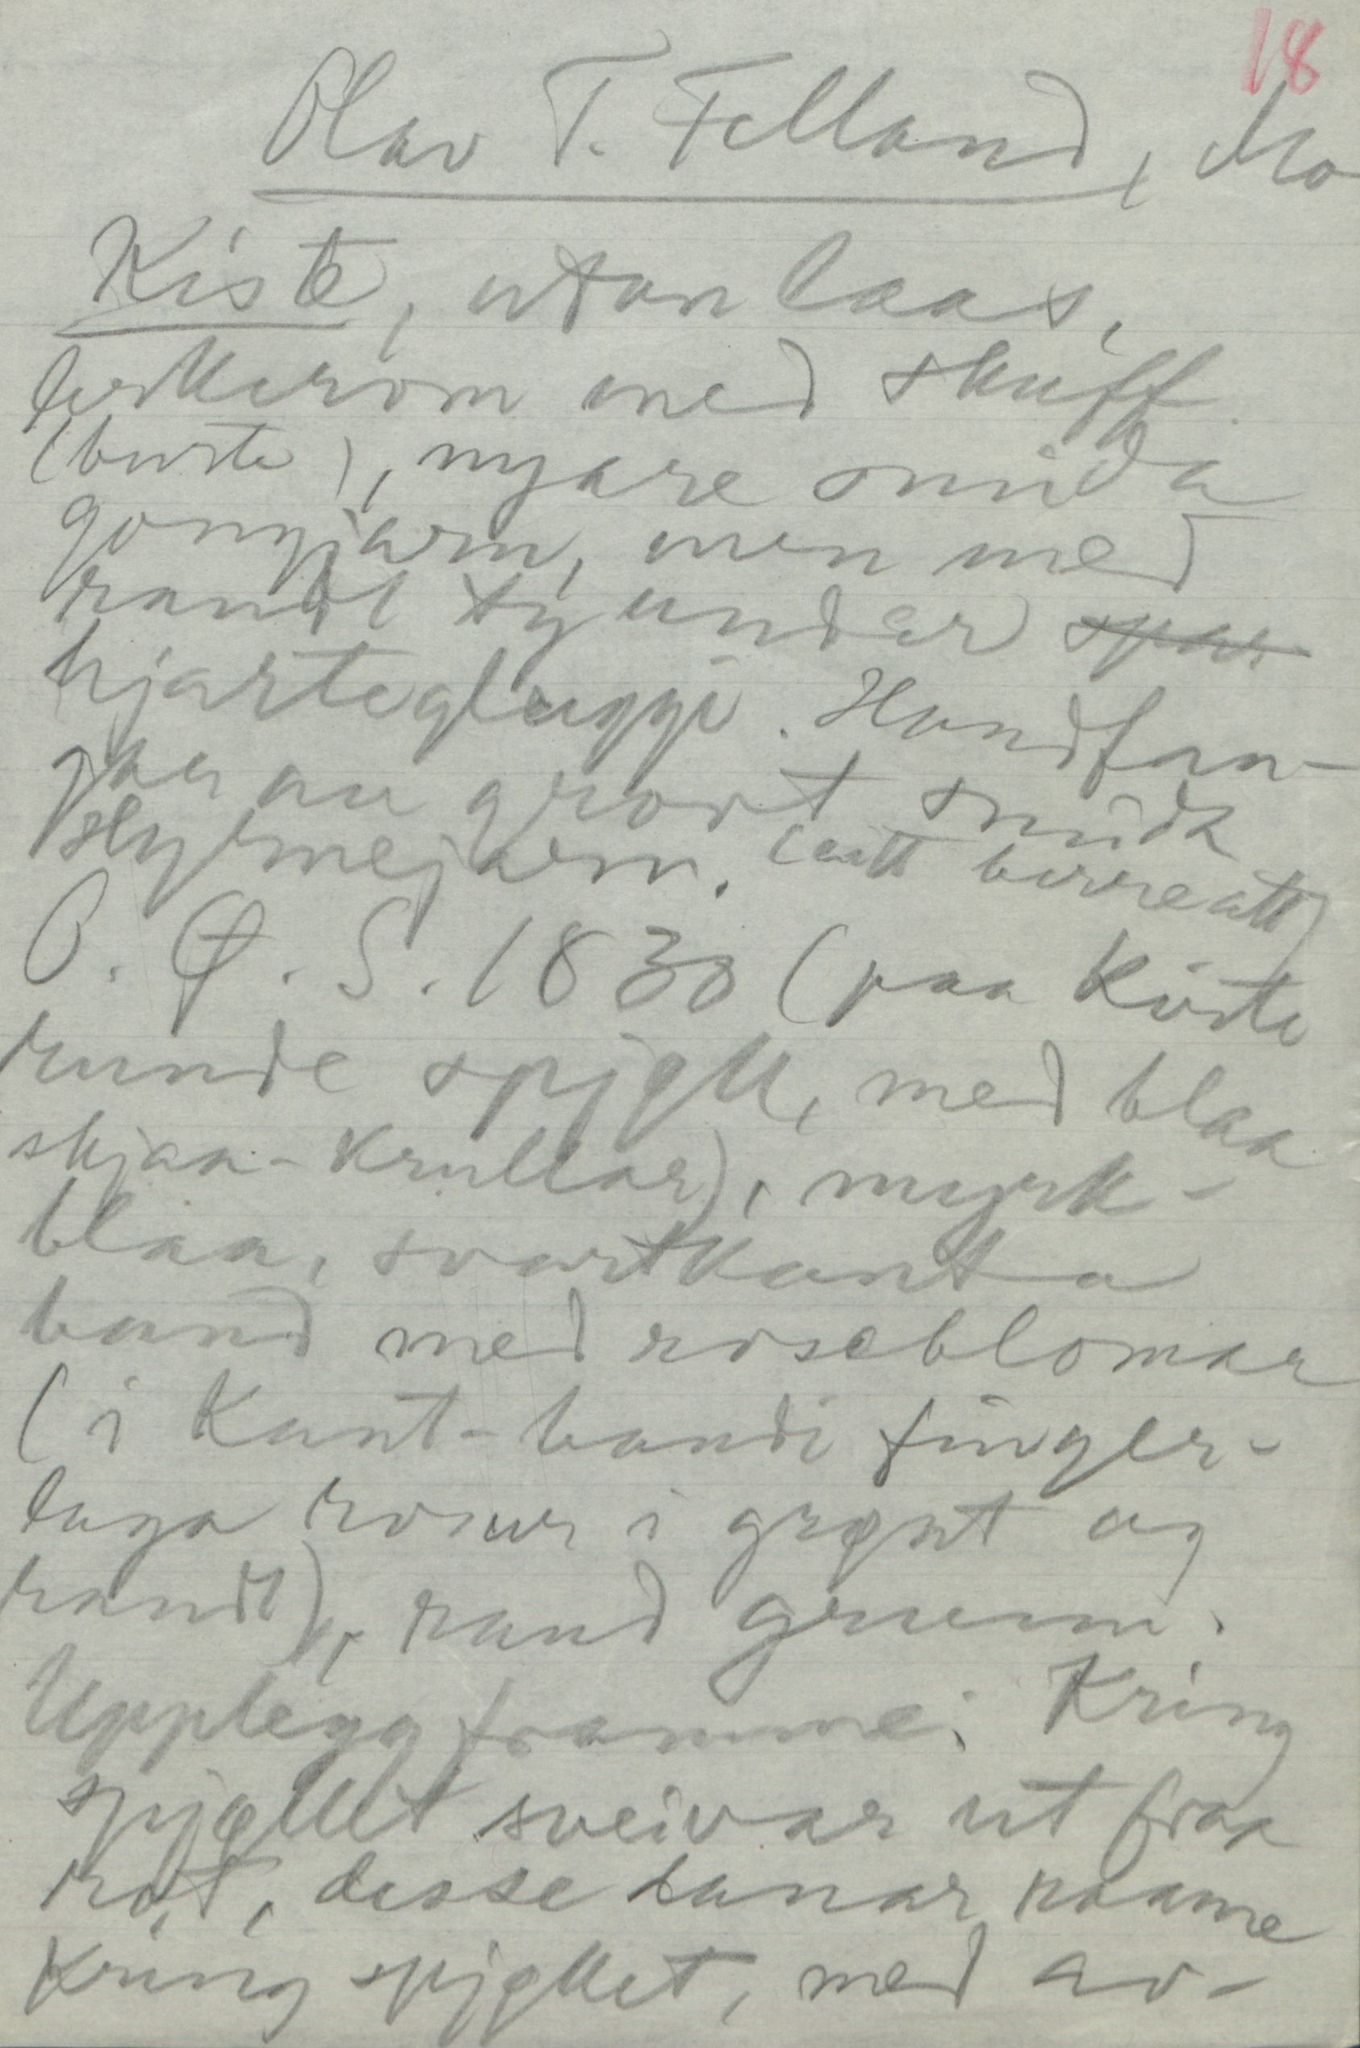 18
Olav T. Felland, Mo
Kiste, utan laas,
leskerom med skuff
(burte), nyare smida
gongjarn, men med
raudt ty under spa
hjartegluggi. Handfan-
gaa au grovt smida
skyrnejarn. (eitt burre att)
O. Ø. S. 1830 (paa kvite
runde spjøll, med blaa
skjaa-krullar), myrk-
blaa, svartkanta
band med roseblomar
(i kant-bandi finger-
laga rosur i grønt og
raudt), raud grunn.
Upplegg framme: Kring
spjøllet sveivar ut fraa
rot, desse lanar raame
kring spjøllet, med av-